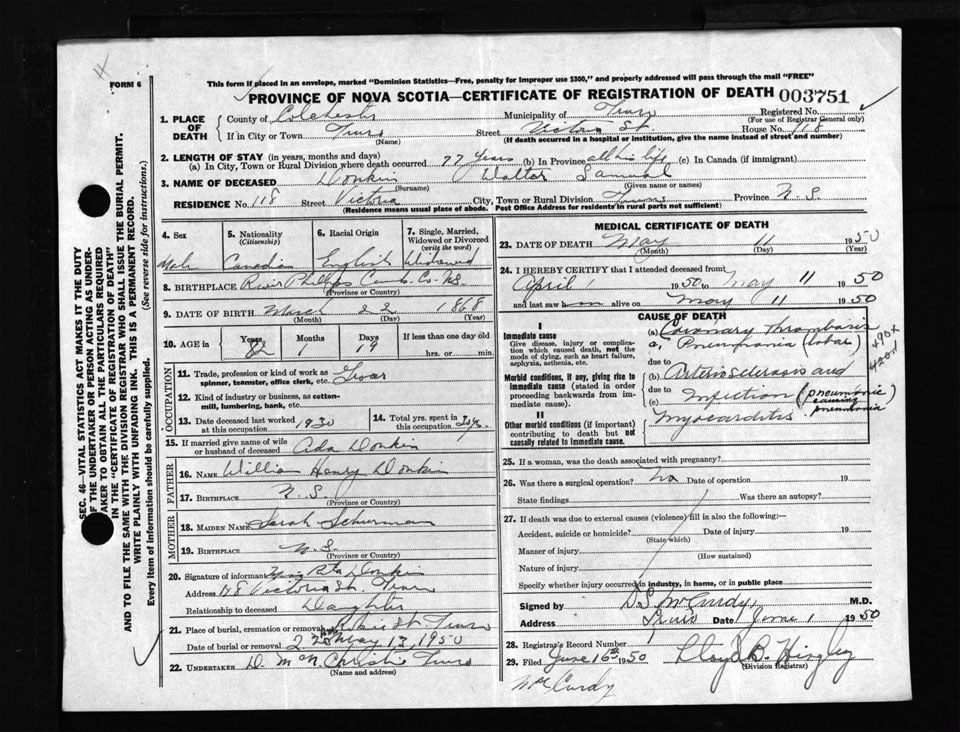 FORM 6
This form if placed in an envelope, marked "Dominion Statistics—Free, penalty for improper use $300," and properly addressed will pass through the mail "FREE"
PROVINCE OF NOVA SCOTIA—CERTIFICATE OF REGISTRATION OF DEATH 003751
1. PLACE OF DEATH
County of Colchester Municipality of Truro Registered No.
(For use of Registrar General only)
If in City or Town Truro Street Victoria St. House No. 118
(Name) (If death occurred in a hospital or institution, give the name instead of street and number)
2. LENGTH OF STAY (in years, months and days)
(a) In City, Town or Rural Division where death occurred 77 years (b) In Province all his life (c) In Canada (if immigrant)
3. NAME OF DECEASED Donkin Walter Samuel
(Surname) (Given name or names)
RESIDENCE No. 118 Street Victoria City, Town or Rural Division Truro Province N.S.
(Residence means usual place of abode. Post Office Address for residents in rural parts not sufficient)
SEC. 46—VITAL STATISTICS ACT MAKES IT THE DUTY
OF THE UNDERTAKER OR PERSON ACTING AS UNDER-
TAKER TO OBTAIN ALL THE PARTICULARS REQUIRED
IN THE "CERTIFICATE OF REGISTRATION OF DEATH"
AND TO FILE THE SAME WITH THE DIVISION REGISTRAR WHO SHALL ISSUE THE BURIAL PERMIT.
WRITE PLAINLY WITH UNFADING INK. THIS IS A PERMANENT RECORD.
Every item of information should be carefully supplied. (See reverse side for instructions.)
4. Sex Male
5. Nationality (Citizenship) Canadian
6. Racial Origin English
7. Single, Married, Widowed or Divorced (write the word) Widowed
8. BIRTHPLACE River Phillips Cumb. Co. N.S.
(Province or Country)
9. DATE OF BIRTH March 22 1868
(Month) (Day) (Year)
10. AGE in Years 82 Months 1 Days 19 If less than one day old hrs. or min.
OCCUPATION
11. Trade, profession or kind of work as spinner, teamster, office clerk, etc.
12. Kind of industry or business, as cotton-mill, lumbering, bank, etc.
13. Date deceased last worked at this occupation 1930
14. Total yrs. spent in this occupation
15. If married give name of wife or husband of deceased Ada Donkin
FATHER
16. NAME William Henry Donkin
17. BIRTHPLACE N.S.
(Province or Country)
MOTHER
18. MAIDEN NAME Sarah Schurman
19. BIRTHPLACE N.S.
(Province or Country)
20. Signature of informant Donkin
Address 118 Victoria St. Truro
Relationship to deceased Daughter
21. Place of burial, cremation or removal St. Truro
Date of burial or removal May 13, 1950
22. UNDERTAKER D. McN Christie Truro
(Name and address)
MEDICAL CERTIFICATE OF DEATH
23. DATE OF DEATH May 11 1950
(Month) (Day) (Year)
24. I HEREBY CERTIFY that I attended deceased from:
April 1 1950 to May 11 1950
and last saw h im alive on May 11 1950
CAUSE OF DEATH
I
Immediate cause
Give disease, injury or complication which caused death, not the mode of dying, such as heart failure, asphyxia, asthenia, etc.
Morbid conditions, if any, giving rise to immediate cause (stated in order proceeding backwards from immediate cause).
II
Other morbid conditions (if important) contributing to death but not causally related to immediate cause.
(a) Coronary Thrombosis
a, Pneumonia (lobar)
due to
(b) Arteriosclerosis and
due to
(c) Infection (pneumonic causing pneumonia
Myocarditis
490x
420x
25. If a woman, was the death associated with pregnancy?
26. Was there a surgical operation? No Date of operation 19
State findings Was there an autopsy?
27. If death was due to external causes (violence) fill in also the following:—
Accident, suicide or homicide? Date of injury 19
(State which)
Manner of injury
(How sustained)
Nature of injury
Specify whether injury occurred in industry, in home, or in public place
Signed by D.S. McCurdy M.D.
Address Truro Date June 1 1950
28. Registrar's Record Number
29. Filed June 16th 1950 Lloyd B. Hingley
(Division Registrar)
McCurdy